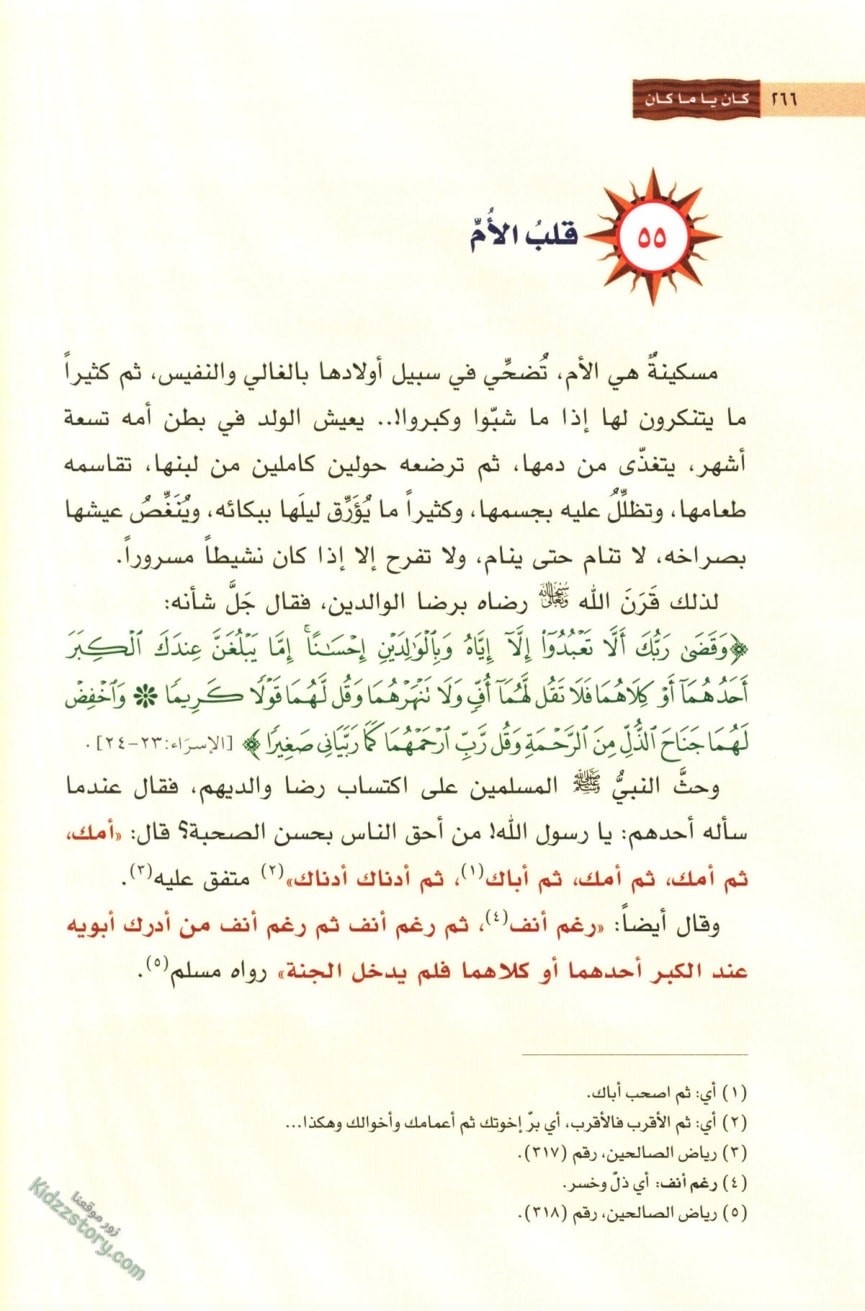 ٢٦٦ كان يا ما كان
٥٥ قلبُ الأُمِّ
مسكينةٌ هي الأم، تُضحِّي في سبيل أولادها بالغالي والنفيس، ثم كثيراً
ما يتنكرون لها إذا ما شبّوا وكبروا!.. يعيش الولد في بطن أمه تسعة
أشهر، يتغذّى من دمها، ثم ترضعه حولين كاملين من لبنها، تقاسمه
طعامها، وتظلِّلُ عليه بجسمها، وكثيراً ما يُؤَرِّق ليلَها ببكائه، ويُنَغِّصُ عيشها
بصراخه، لا تنام حتى ينام، ولا تفرح إلا إذا كان نشيطاً مسروراً.
لذلك قَرَنَ الله ﷾ رضاه برضا الوالدين، فقال جَلَّ شأنه:
﴿وَقَضَىٰ رَبُّكَ أَلَّا تَعْبُدُوٓا۟ إِلَّآ إِيَّاهُ وَبِٱلْوَٰلِدَيْنِ إِحْسَـٰنًا ۚ إِمَّا يَبْلُغَنَّ عِندَكَ ٱلْكِبَرَ
أَحَدُهُمَآ أَوْ كِلَاهُمَا فَلَا تَقُل لَّهُمَآ أُفٍّ وَلَا نَنْهَرْهُمَا وَقُل لَّهُمَا قَوْلًا كَرِيمًا ❊ وَٱخْفِضْ
لَهُمَا جَنَاحَ ٱلذُّلِّ مِنَ ٱلرَّحْمَةِ وَقُل رَّبِّ ٱرْحَمْهُمَا كَمَا رَبَّيَانِى صَغِيرًا﴾ [الإسرَاء: ٢٣-٢٤].
وحثَّ النبيُّ ﷺ المسلمين على اكتساب رضا والديهم، فقال عندما
سأله أحدهم: يا رسول الله! من أحق الناس بحسن الصحبة؟ قال: «أمك،
ثم أمك، ثم أمك، ثم أباك(١)، ثم أدناك أدناك»(٢) متفق عليه(٣).
وقال أيضاً: «رغم أنف(٤)، ثم رغم أنف ثم رغم أنف من أدرك أبويه
عند الكبر أحدهما أو كلاهما فلم يدخل الجنة» رواه مسلم(٥).
(١) أي: ثم اصحب أباك.
(٢) أي: ثم الأقرب فالأقرب، أي برّ إخوتك ثم أعمامك وأخوالك وهكذا...
(٣) رياض الصالحين، رقم (٣١٧).
(٤) رغم أنف: أي ذلّ وخسر.
(٥) رياض الصالحين، رقم (٣١٨).
زور موقعنا
Kidzzstory.com